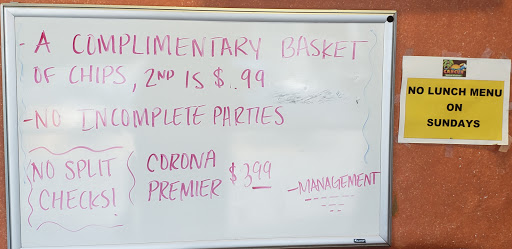 - A COMPLIMENTARY BASKET
OF CHIPS, 2ND IS $ .99
-NO INCOMPLETE PARTIES
NO SPLIT
CHECKS!
CORONA
PREMIER
$3.99
-MANAGEMENT
NO LUNCH MENU
ON
SUNDAYS